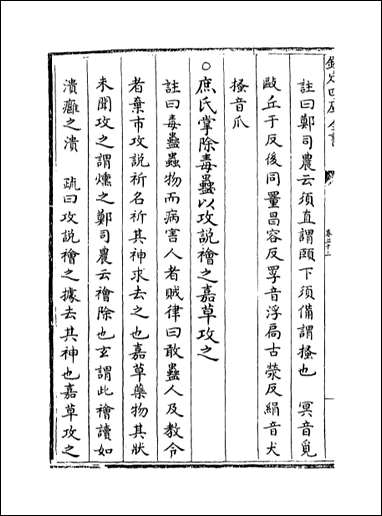 欽定四庫全書
卷三十三
註曰鄭司農云須直謂頤下須備謂搔也　冥音覓
敺丘于反後同罿昌容反罦音浮扃古滎反絹音犬
搔音爪
○庶氏掌除毒蠱以攻說禬之嘉草攻之
註曰毒蠱蟲物而病害人者賊律曰敢蠱人及教令
者棄市攻說祈名祈其神求去之也嘉草藥物其狀
未聞攻之謂燻之鄭司農云禬除也玄謂此禬讀如
潰癰之潰　疏曰攻說禬之據去其神也嘉草攻之